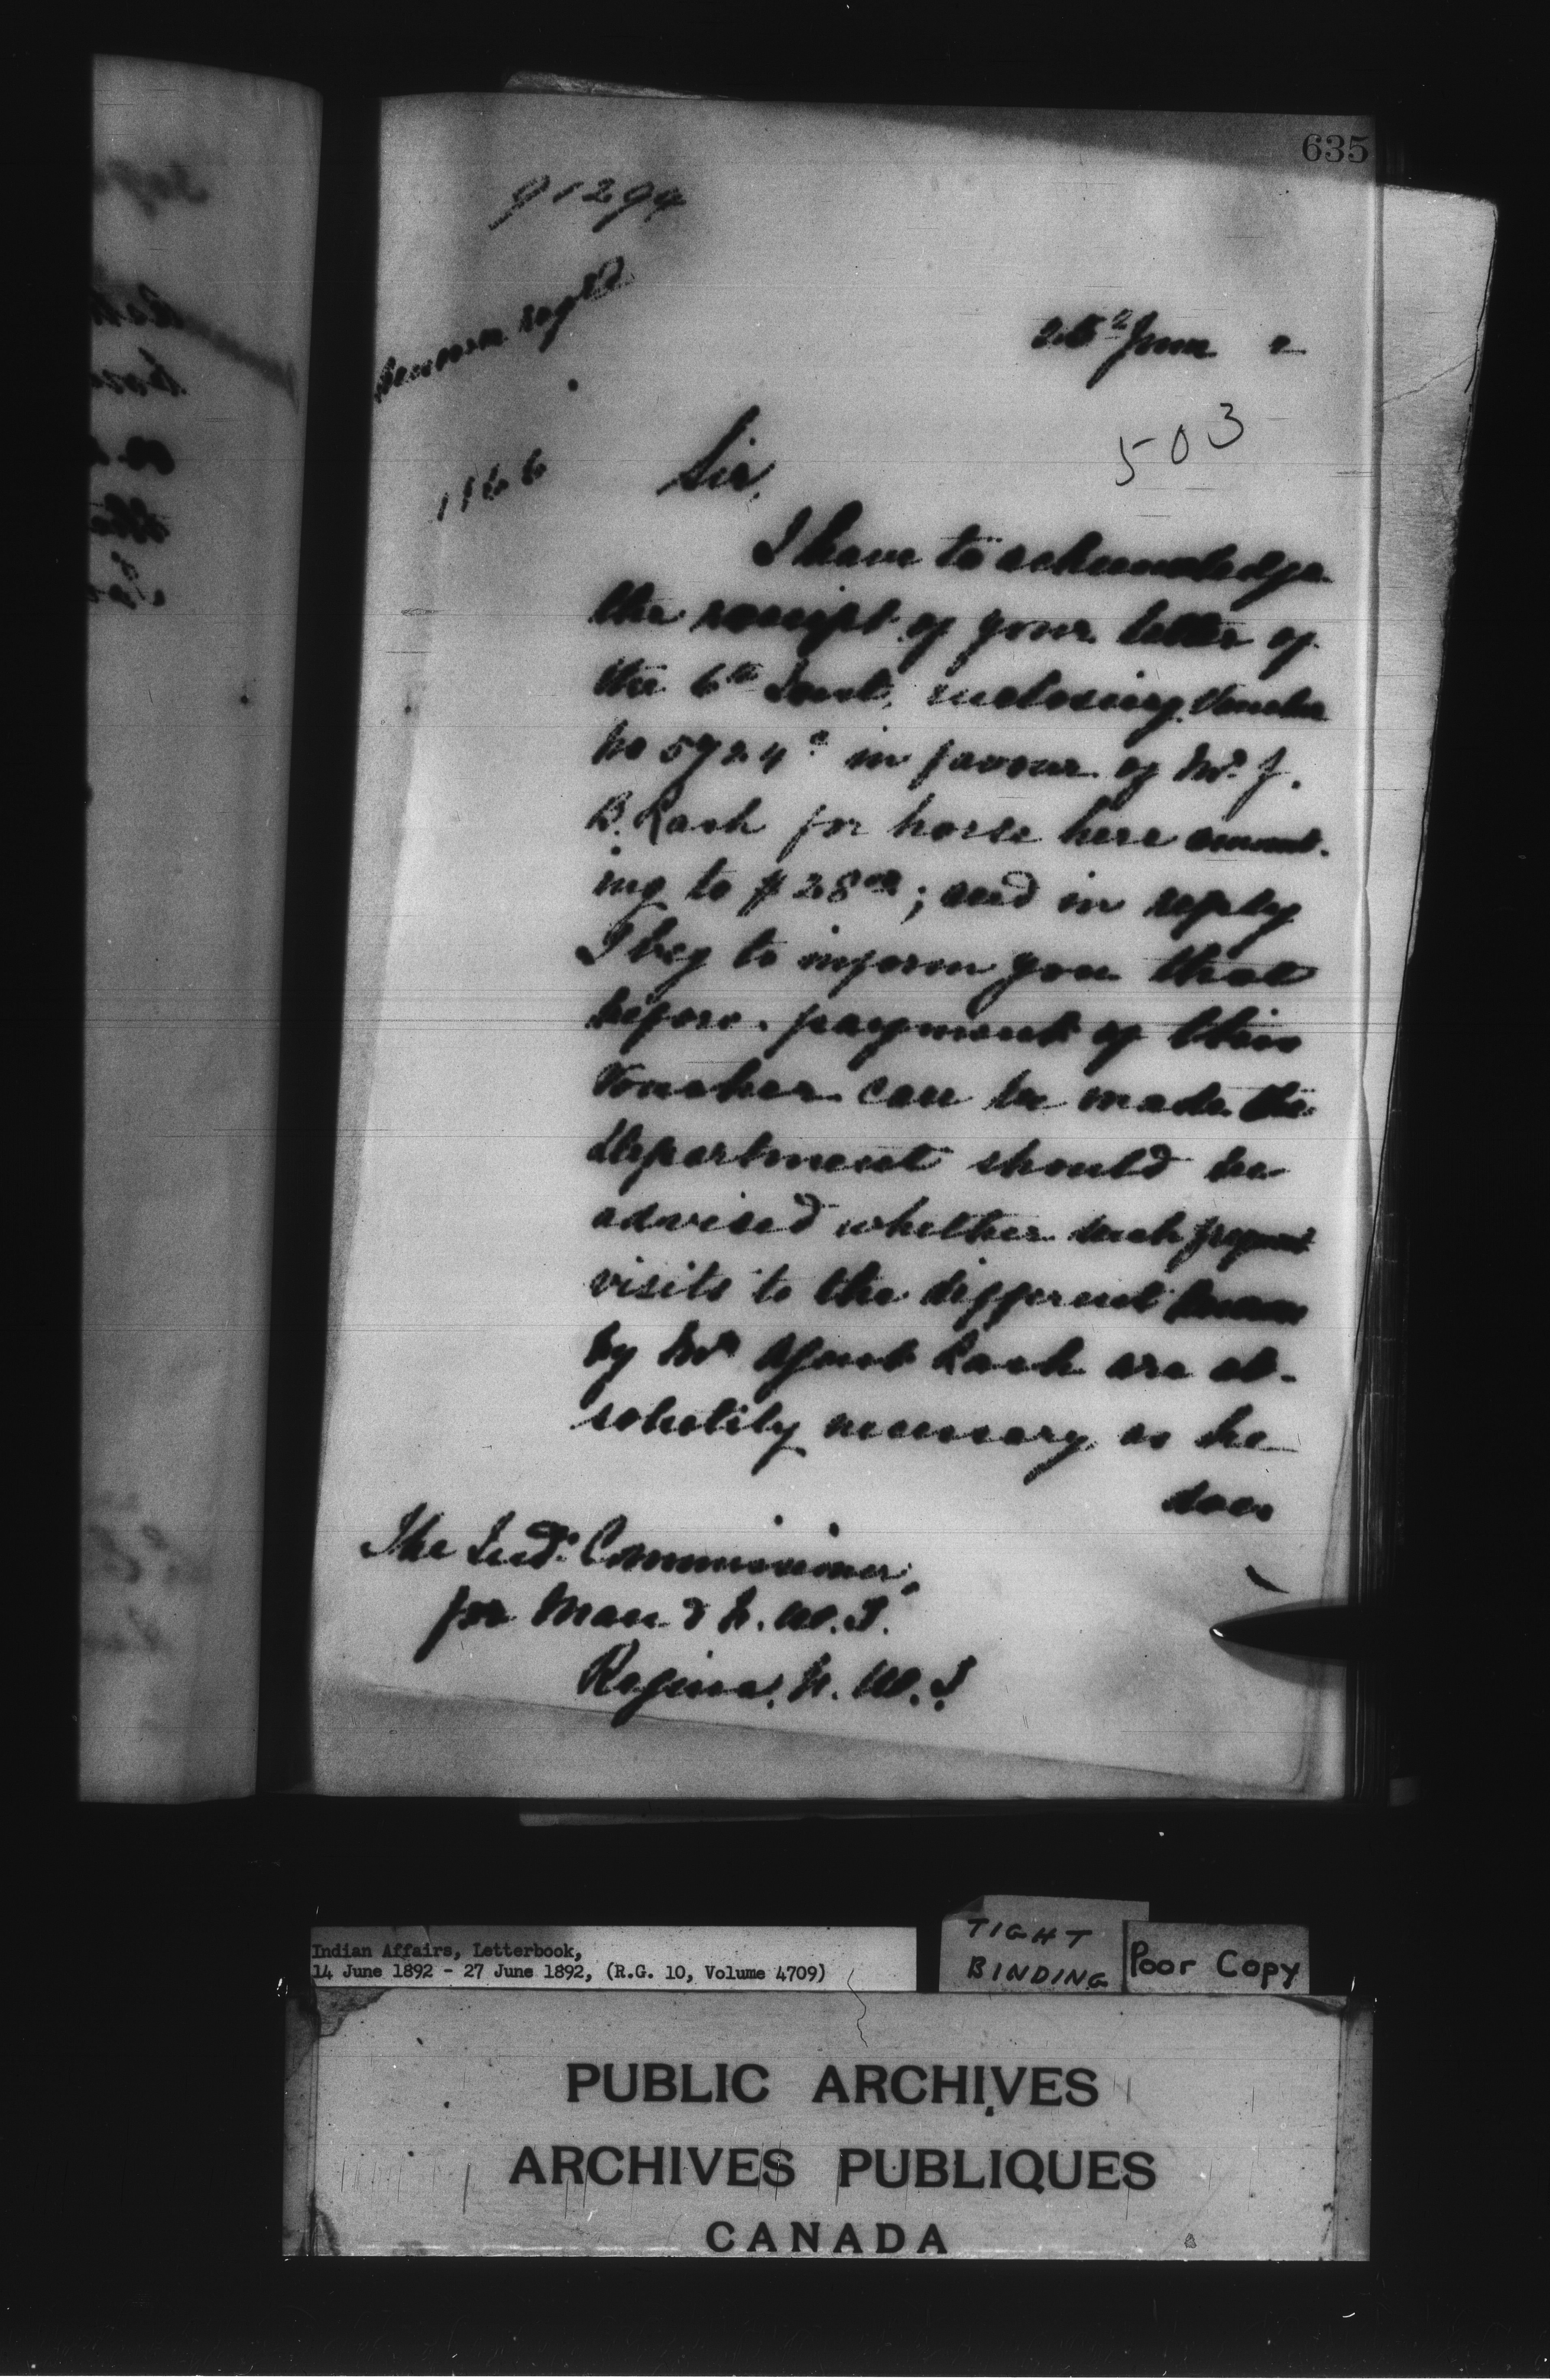 635
91294
25th June 2
503
1166
Sir,
I have to acknowledge
the receipt of your letter of
the 6th Inst. enclosing Voucher
No 5724 in favour of Mr. J.
B. Lash for horse hire amount-
ing to $28 00; and in reply
I beg to inform you that
before payment of this
Voucher can be made the
Department should be
advised whether such frequent
visits to the different
by Mr Agent Lash are ab-
solutely necessary as he
does
The Ind. Commissioner,
for Man & N. W. T.
Regina, N. W. T.
Indian Affairs, Letterbook,
14 June 1892 - 27 June 1892, (R.G. 10, Volume 4709)
TIGHT
BINDING
Poor Copy
PUBLIC ARCHIVES
ARCHIVES PUBLIQUES
CANADA